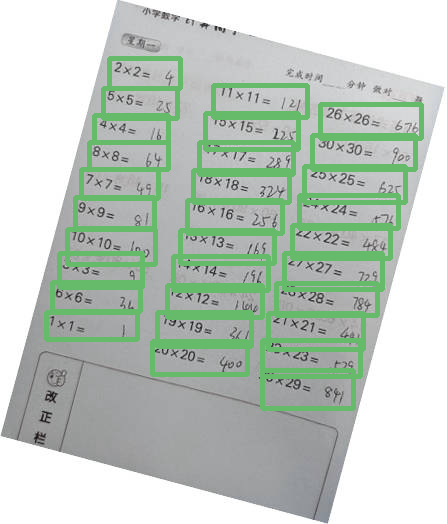 小学数学
星期一
完成时间 分钟 做对 题
2×2= 4
5×5= 25
4×4= 16
8×8= 64
7×7= 49
9×9= 81
10×10= 100
3×3= 9
6×6= 36
1×1= 1
11×11= 121
15×15= 225
17×17= 289
18×18= 324
16×16= 256
13×13= 169
14×14= 196
12×12=
19×19= 361
20×20= 400
26×26= 676
30×30= 900
25×25= 625
24×24= 576
22×22= 484
27×27= 729
28×28= 784
21×21= 441
23×23= 529
29×29= 841
改正栏